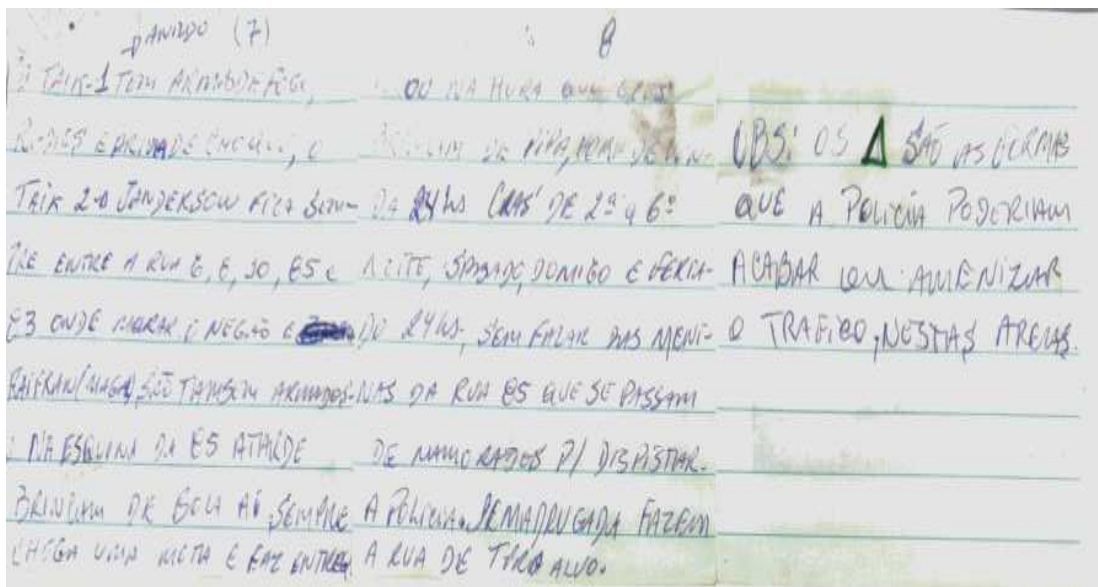 (7)
TAIK-1 TEM ARMA DE FOGO,
TAIK 2-O JANDERSON FICA SEM-
PRE ENTRE A RUA E, E, 10, E5 E
E3 ONDE MORAR O NEGÃO E
RAIFRAN (MAGA) SÃO TAMBEM ARMADOS
NA ESQUINA DA E5 ATARDE
BRINCAM DE BOLA AÍ SEMPRE
CHEGA UMA META E FAZ ENTREGA
8
OU NA HORA QUE ELES
BRINCAM DE PIPA,
DA 24HS DE 2ª a 6ª
A NOITE, SABADO, DOMIGO E FERIA-
DO 24HS, SEM FALAR DAS MENI-
NAS DA RUA E5 QUE SE PASSAM
DE NAMORADOS P/ DISPISTAR
A POLICIA. DE MADRUGADA FAZEM
A RUA DE TIRO ALVO.
OBS: OS Δ SÃO AS FORMAS
QUE A POLICIA PODERIAM
ACABAR OU AMENIZAR
O TRAFICO, NESTAS AREAS.